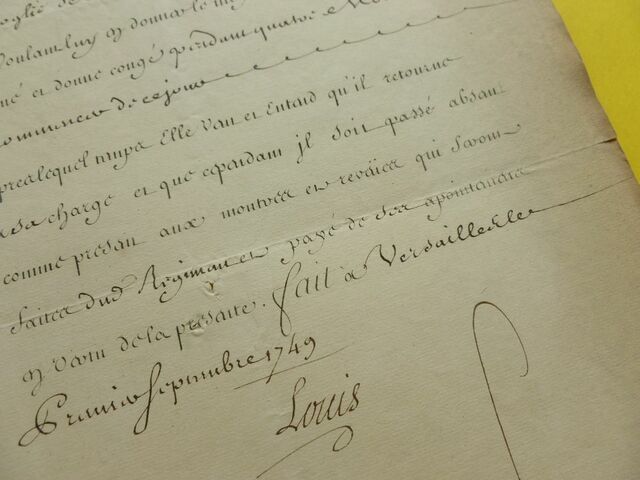 Voulant luy en donner le
et donné congé pendant quatre
commencer de ce jour
lequel temps Elle Veut et Entend qu'il retourne
a sa charge et que cependant jl soit passé absent
comme present aux montres et reveües qui seront
faites dud. Regiment et payé de ses apointemens
en vertu de la presente. fait a Versailles le
Premier Septembre 1749
Louis